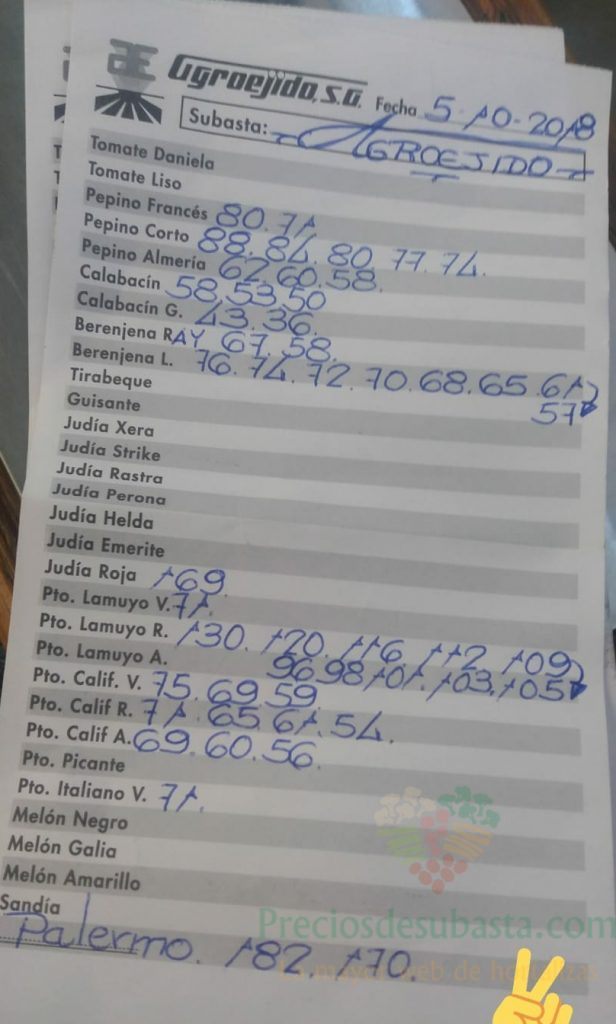 Agroejido, S.A. Fecha 5-10-2018
Subasta: AGROEJIDO
Tomate Daniela
Tomate Liso
Pepino Francés 80. 71.
Pepino Corto 88. 84. 80. 77. 74.
Pepino Almería 62. 60. 58.
Calabacín 58. 53. 50
Calabacín G. 43. 36.
Berenjena RAY 67. 58.
Berenjena L. 76. 74. 72. 70. 68. 65. 61
57
Tirabeque
Guisante
Judía Xera
Judía Strike
Judía Rastra
Judía Perona
Judía Helda
Judía Emerite
Judía Roja 169
Pto. Lamuyo V. 71.
Pto. Lamuyo R. 130. 120. 116. 112. 109
Pto. Lamuyo A. 96. 98. 101. 103. 105
Pto. Calif. V. 75. 69. 59
Pto. Calif R. 71. 65. 61. 54.
Pto. Calif A. 69. 60. 56.
Pto. Picante
Pto. Italiano V. 71.
Melón Negro
Melón Galia
Melón Amarillo
Sandía
Preciosdesubasta.com
Palermo. 182. 170.
La mayor web de hortalizas